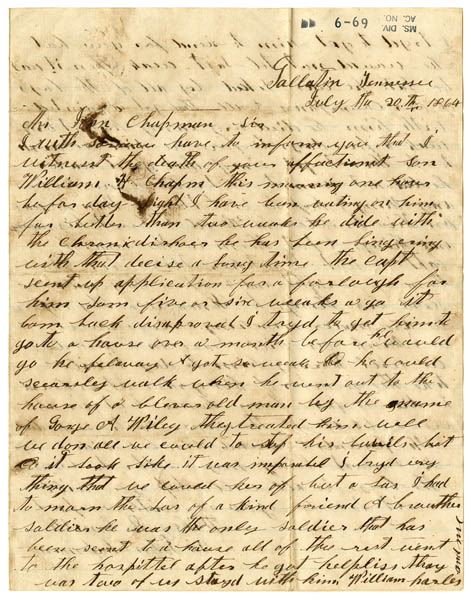 MS. DIV.
AC. NO.
6-69
Gallatin Tennessee
July the 20th 1864
Mr John Chapman Sir
I with sorrow have to inform you that I
witnest the death of your affectionet Son
William H Chapm this morning one hour
befor day light I have been wating on him
for better than two weaks he dide with
the Chronic diahoer he has been lingering
with that decise a long time the capt
sent up application for a furlough for
him som five or six weaks ago it
com back disaproved I tryd to get him to
go to a house over a month before he would
go he put away & got so weak he could
scearsly walk when he went out to the
house of a clever old man by the name
of Gorge A Wiley they treated him well
we don all we could to his but
it look like it was imposibel I tryd evry
thing that we could her of but a las I had
to morn the los of a kind friend & brouther
soldier he was the only soldier that has
been sent to a house all of the rest went
to the hospittel after he got helpliss thay
was two of us stayd with him William harles
and me